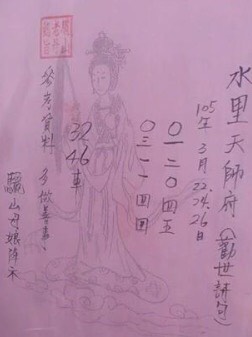 水里天師府（勸世詩句）
105年3月22.24.26日
〇一二〇四五
〇三一一回回
32
46車
參考資料
多做善事
驪山母娘降示